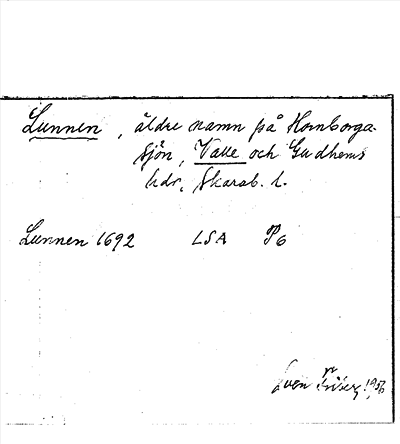 Lunnen, äldre namn på Hornborga-
sjön, Valle och Gudhems
hdr, Skarab. l.
Lunnen 1692 LSA P6
Sven 1956